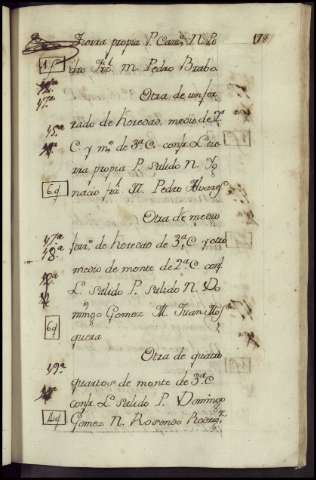 Tierra propia P. Cam.º N. Po
178
dro Frz. M. Pedro Brabo.
Otra de un fer
17.ª
rado de heredad, medio de 2.ª
C y m.º de 3.ª C. conf. L. tie
rra propia P. sulido N. Yg
6 q.
nacio frz. M. Pedro Alvarez.
Otra de medio
17.ª
fer.º de heredad de 3.ª C. y otro
18.ª
medio de monte de 2.ª C. conf.
L. sulido P. sulido N. Do
mingo Gomez M. Juan
6 q.
quera
Otra de quatro
19.ª
quartos de monte de 3.ª C
conf. L. sulido P. Domingo
4 q.
Gomez N. Rosendo Rodrig.z